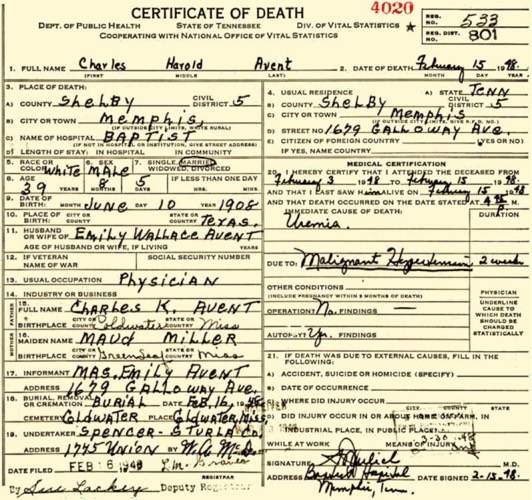 CERTIFICATE OF DEATH
4020
DEPT. OF PUBLIC HEALTH STATE OF TENNESSEE DIV. OF VITAL STATISTICS
COOPERATING WITH NATIONAL OFFICE OF VITAL STATISTICS
REG. NO. 533
REG. DIST. 801
1. FULL NAME Charles Harold Avent
(FIRST) (MIDDLE) (LAST)
2. DATE OF DEATH February 15 1948
MONTH DAY YEAR
3. PLACE OF DEATH:
A) COUNTY SHELBY CIVIL DISTRICT 5
B) CITY OR TOWN MEMPHIS
(IF OUTSIDE CITY LIMITS, WRITE RURAL)
C) NAME OF HOSPITAL BAPTIST
(IF NOT IN HOSPITAL OR INSTITUTION, GIVE STREET ADDRESS)
D) LENGTH OF STAY: IN HOSPITAL IN COMMUNITY
4. USUAL RESIDENCE A) STATE TENN
B) COUNTY SHELBY CIVIL DISTRICT 5
C) CITY OR TOWN MEMPHIS
D) STREET NO 1679 GALLOWAY AVE.
E) CITIZEN OF FOREIGN COUNTRY (YES OR NO)
IF YES, NAME COUNTRY
5. RACE OR COLOR WHITE 6. SEX MALE 7. SINGLE, MARRIED WIDOWED, DIVORCED
8. AGE 39 YEARS 8 MONTHS 5 DAYS IF LESS THAN ONE DAY HRS. MIN.
9. DATE OF BIRTH: JUNE 10 1908
MONTH DAY YEAR
10. PLACE OF BIRTH: CITY OR COUNTY STATE OR COUNTRY TEXAS.
11. HUSBAND OR WIFE OF EMILY WALLACE AVENT
AGE OF HUSBAND OR WIFE, IF LIVING YEARS
12. IF VETERAN NAME OF WAR SOCIAL SECURITY NUMBER
13. USUAL OCCUPATION PHYSICIAN
14. INDUSTRY OR BUSINESS
FATHER
15. FULL NAME CHARLES K. AVENT
BIRTHPLACE CITY OR COUNTY Coldwater STATE OR COUNTRY Miss
MOTHER
16. MAIDEN NAME MAUD MILLER
BIRTHPLACE CITY OR COUNTY STATE OR COUNTRY Miss
17. INFORMANT MRS. EMILY AVENT
ADDRESS 1679 GALLOWAY AVE.
18. BURIAL, REMOVAL OR CREMATION BURIAL DATE FEB, 16, 1948
CEMETERY COLDWATER PLACE COLDWATER, MISS
19. UNDERTAKER SPENCER-STURLA CO.
ADDRESS 1745 UNION BY
DATE FILED FEB 16 1948
REGISTRAR
By Sue Lackey Deputy Registrar
MEDICAL CERTIFICATION
20. I HEREBY CERTIFY THAT I ATTENDED THE DECEASED FROM
February 3 1948 TO February 15 1948
AND THAT I LAST SAW HIM ALIVE ON February 15 1948
AND THAT DEATH OCCURRED ON THE DATE STATED AT P M.
IMMEDIATE CAUSE OF DEATH: DURATION
Uremia.
DUE TO: Malignant Hypertension 2 weeks
OTHER CONDITIONS
(INCLUDE PREGNANCY WITHIN 3 MONTHS OF DEATH)
OPERATION? No. FINDINGS
AUTOPSY? Yes. FINDINGS
PHYSICIAN
UNDERLINE CAUSE TO WHICH DEATH SHOULD BE CHARGED STATISTICALLY
21. IF DEATH WAS DUE TO EXTERNAL CAUSES, FILL IN THE FOLLOWING:
A) ACCIDENT, SUICIDE OR HOMICIDE (SPECIFY)
B) DATE OF OCCURRENCE
C) WHERE DID INJURY OCCUR CITY COUNTY STATE
D) DID INJURY OCCUR IN OR ABOUT HOME OR FARM, IN
INDUSTRIAL PLACE, IN PUBLIC PLACE?
WHILE AT WORK MEANS OF INJURY
3-30-48
SIGNATURE M.D.
ADDRESS Baptist Hospital DATE SIGNED 2-15-48
Memphis, Tenn.